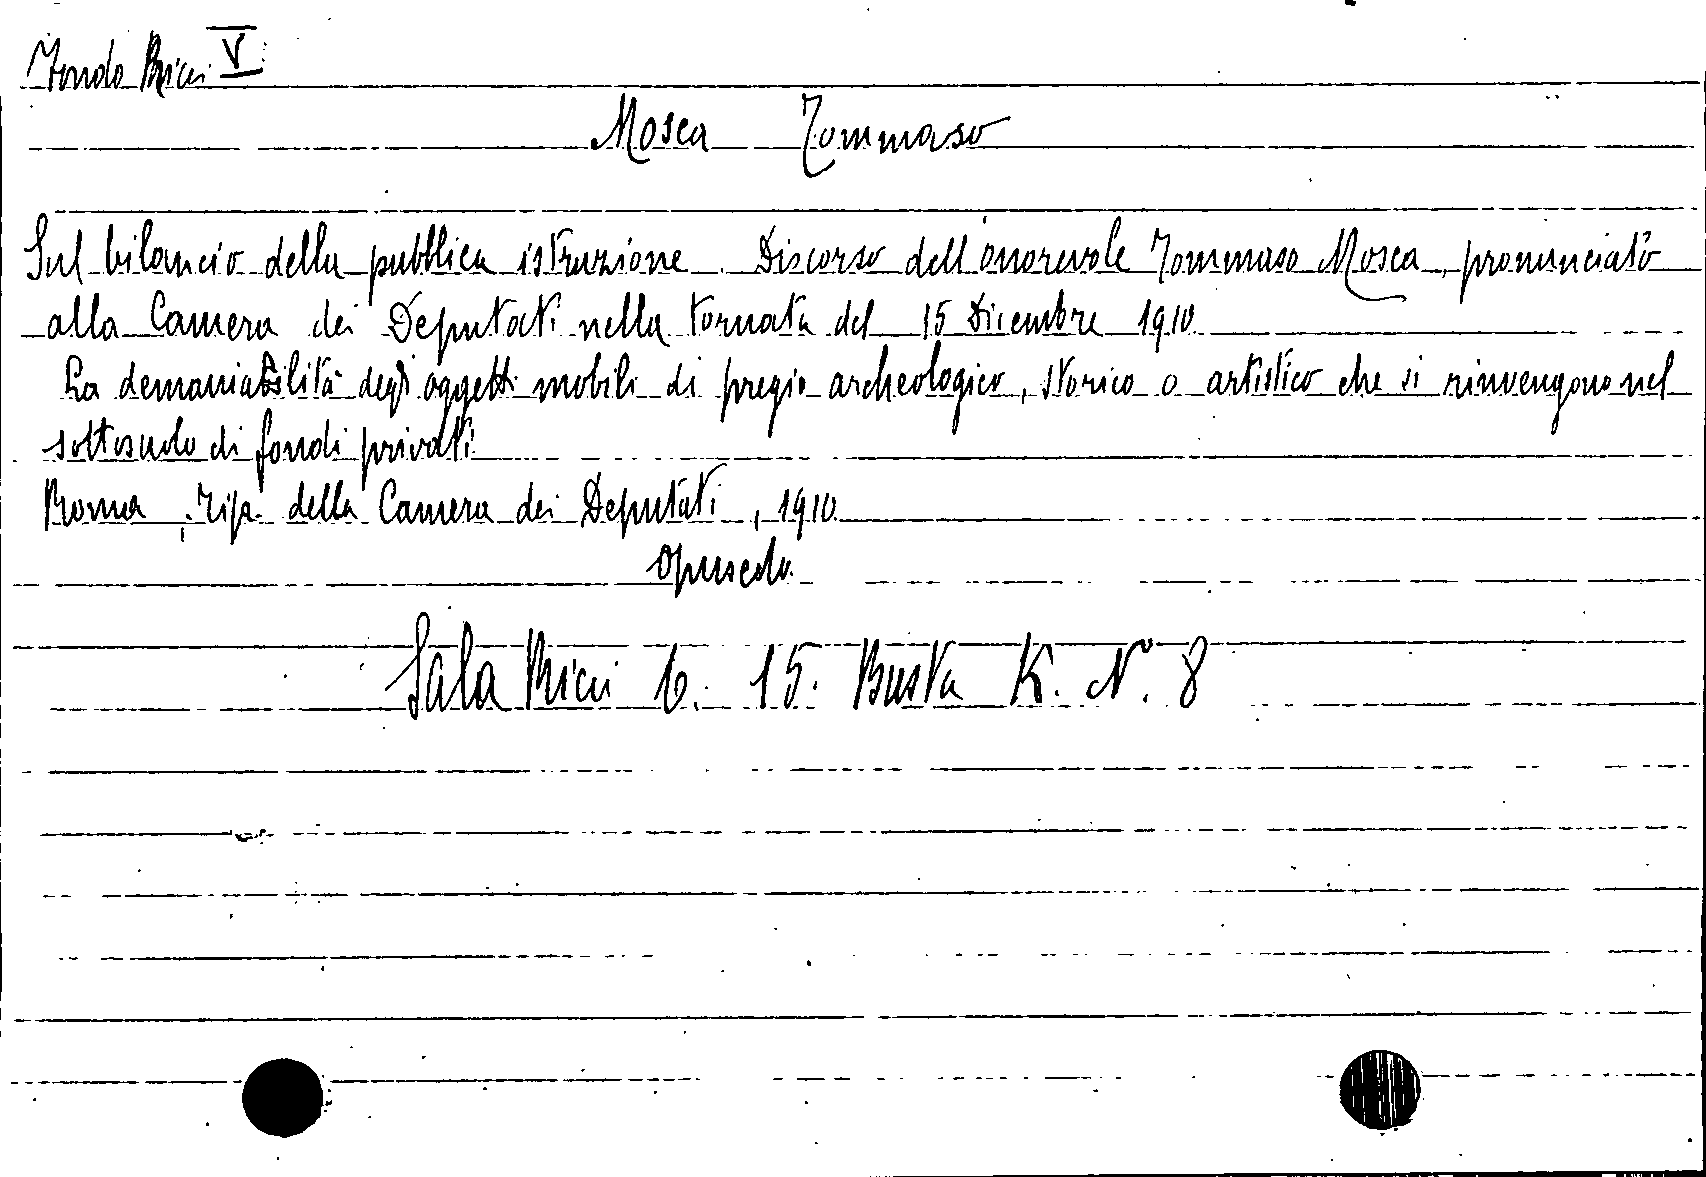 Fondo Ricci V
Mosca Tommaso
Sul bilancio della pubblica istruzione. Discorso dell'onorevole Tommaso Mosca, pronunciato
alla Camera dei Deputati nella tornata del 15 Dicembre 1910
La demaniabilità degli oggetti mobili di pregio archeologico, storico o artistico che si rinvengono nel
sottosuolo di fondi privati
Roma, Tip. della Camera dei Deputati, 1910
Opuscolo
Sala Ricci 6. 15. Busta K. N. 8